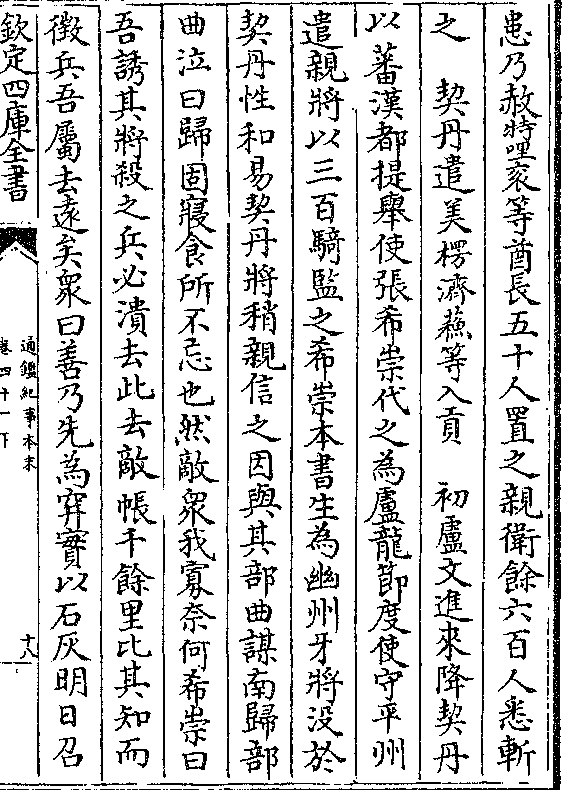 患乃赦特哩衮等酋長五十人置之親衛餘六百人悉斬
之　契丹遣美楞濟蘇等入貢　初盧文進來降契丹
以蕃漢都提舉使張希崇代之為盧龍節度使守平州
遣親將以三百騎監之希崇本書生為幽州牙將没於
契丹性和易契丹將稍親信之因與其部曲謀南歸部
曲泣曰歸固寢食所不忘也然敵衆我寡奈何希崇曰
吾誘其將殺之兵必潰去此去敵帳千餘里比其知而
徵兵吾屬去遠矣衆曰善乃先為穽實以石灰明日召
欽定四庫全書
通鑑紀事本末
卷四十一下
十八